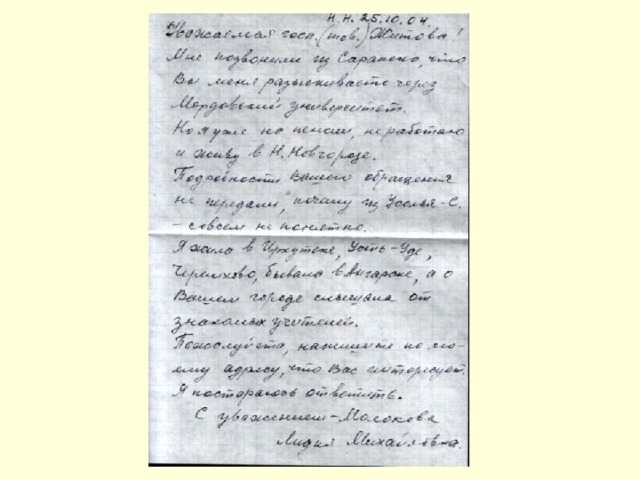 Н.Н. 25.10.04.
Уважаемая госп. (тов.) Житова!
Мне позвонили из Саранска, что
Вы меня разыскиваете через
Мордовский университет.
Но я уже на пенсии, не работаю
и живу в Н. Новгороде.
Подробности Вашего обращения
не передали, почему из Усолья-С.
- совсем не понятно.
Я жила в Иркутске, Усть-Уде,
Черемхово, бывала в Ангарске, а о
Вашем городе слышала от
знакомых учителей.
Пожалуйста, напишите по мо-
ему адресу, что Вас интересует.
Я постараюсь ответить.
С уважением - Молокова
Лидия Михайловна.